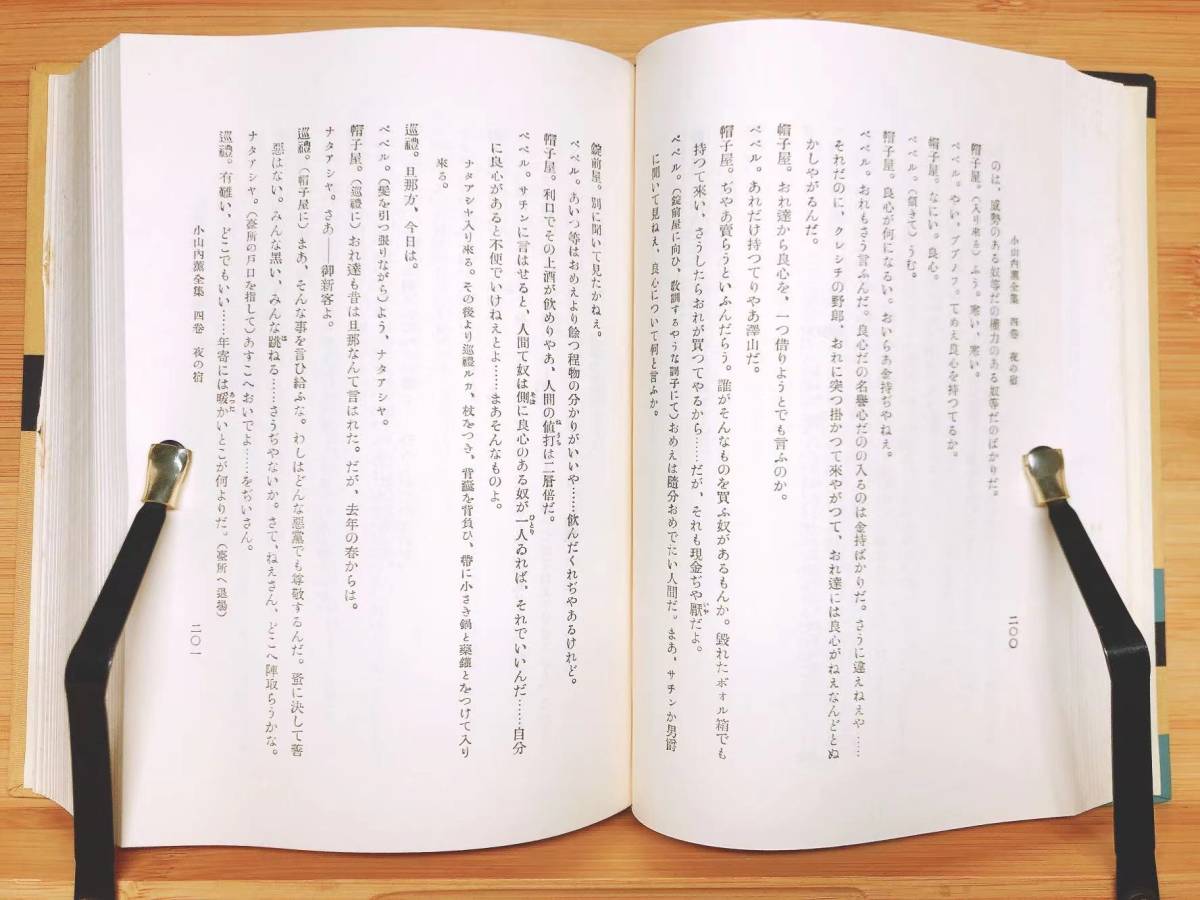 小山内薫全集　四巻　夜の宿
二〇〇
のは、威勢のある奴等だの権力のある奴等だのばかりだ。
帽子屋。（入り來る）ふう。寒い、寒い。
ペペル。やい、ブブノフ。てめえ良心を持つてるか。
帽子屋。なにい。良心。
ペペル。（頷きて）うむ。
帽子屋。良心が何になるい。おいらあ金持ぢやねえ。
ペペル。おれもさう言ふんだ。良心だの名譽心だのの入るのは金持ばかりだ。さうに違えねえや……
それだのに、クレシチの野郎、おれに突つ掛かつて來やがつて、おれ達には良心がねえなんどとぬ
かしやがるんだ。
帽子屋。おれ達から良心を、一つ借りようとでも言ふのか。
ペペル。あれだけ持つてりやあ澤山だ。
帽子屋。ぢやあ賣らうといふんだらう。誰がそんなものを買ふ奴があるもんか。毀れたボオル箱でも
持つて來い、さうしたらおれが買つてやるから……だが、それも現金ぢや厭だよ。
ペペル。（錠前屋に向ひ、敎訓するやうな調子にて）おめえは隨分おめでたい人間だ。まあ、サチンか男爵
に聞いて見ねえ、良心について何と言ふか。
錠前屋。別に聞いて見たかねえ。
ペペル。あいつ等はおめえより餘つ程物の分かりがいいや……飲んだくれぢやあるけれど。
帽子屋。利口でその上酒が飲めりやあ、人間の値打は二層倍だ。
ペペル。サチンに言はせると、人間て奴は側に良心のある奴が一人ゐれば、それでいいんだ……自分
に良心があると不便でいけねえとよ……まあそんなものよ。
ナタアシヤ入り來る。その後より巡禮ルカ、杖をつき、背囊を背負ひ、帶に小さき鍋と藥鑵とをつけて入り
來る。
巡禮。旦那方、今日は。
ペペル。（髪を引つ張りながら）よう、ナタアシヤ。
帽子屋。（巡禮に）おれ達も昔は旦那なんて言はれた。だが、去年の春からは。
ナタアシヤ。さあ――御新客よ。
巡禮。（帽子屋に）まあ、そんな事を言ひ給ふな。わしはどんな惡黨でも尊敬するんだ。蚤に決して善
惡はない。みんな黒い、みんな跳ねる……さうぢやないか。さて、ねえさん、どこへ陣取らうかな。
ナタアシヤ。（臺所の戸口を指して）あすこへおいでよ……をぢいさん。
巡禮。有難い、どこでもいい……年寄には暖かいとこが何よりだ。（臺所へ退場）
小山内薫全集　四巻　夜の宿
二〇一